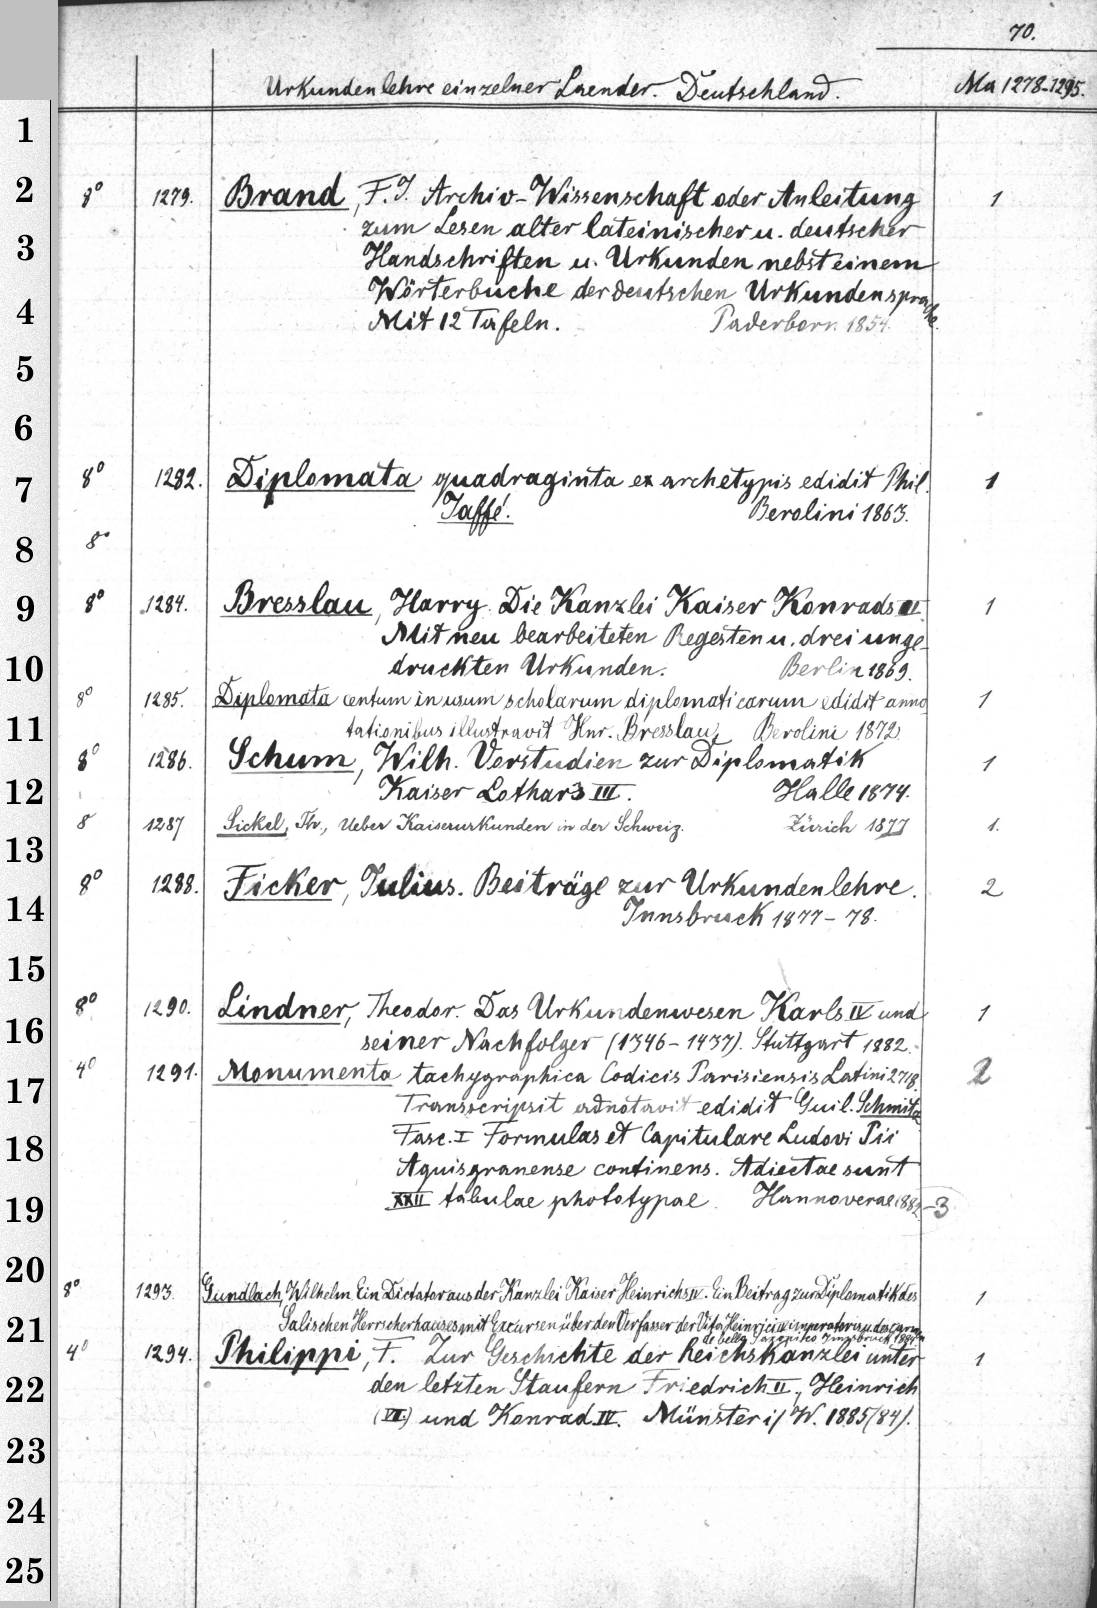 70.
Urkundenlehre einzelner Laender. Deutschland. Ma 1278-1295.
1
2 8° 1279. Brand, F.J. Archiv-Wissenschaft oder Anleitung 1
3 zum Lesen alter lateinischer u. deutscher
Handschriften u. Urkunden nebst einem
4 Wörterbuche der deutschen Urkundensprache.
Mit 12 Tafeln. Paderborn 1854.
5
6
7 8° 1282. Diplomata quadraginta ex archetypis edidit Phil. 1
Jaffé. Berolini 1863.
8 8°
9 8° 1284. Bresslau, Harry. Die Kanzlei Kaiser Konrads II. 1
Mit neu bearbeiteten Regesten u. drei unge-
10 druckten Urkunden. Berlin 1869.
8° 1285. Diplomata centum in usum scholarum diplomaticarum edidit anno 1
11 tationibus illustravit Hnr. Bresslau. Berolini 1872.
8° 1286. Schum, Wilh. Vorstudien zur Diplomatik 1
12 Kaiser Lothars III. Halle 1874.
8 1287 Sickel, Th., Ueber Kaiserurkunden in der Schweiz. Zürich 1877 1.
13
14 8° 1288. Ficker, Julius. Beiträge zur Urkundenlehre. 2
Innsbruck 1877-78.
15
8° 1290. Lindner, Theodor. Das Urkundenwesen Karls IV und 1
16 seiner Nachfolger (1346-1437). Stuttgart 1882.
4° 1291. Monumenta tachygraphica Codicis Parisiensis Latini 2718. 2
17 Transscripsit adnotavit edidit Guil. Schmitz
Fasc. I Formulas et Capitulare Ludovi Pii
18 Aquisgranense continens. Adiectae sunt
19 XXII tabulae phototypae. Hannoverae 1882-3
20
8° 1293. Gundlach, Wilhelm. Ein Dictator aus der Kanzlei Kaiser Heinrichs IV. Ein Beitrag zur Diplomatik des 1
21 Salischen Herrscherhauses mit Excursen über den Verfasser der Vita Heinrici IV imperatoris u. des carmen
de bello Saxonico Innsbruck 1884.
4° 1294. Philippi, F. Zur Geschichte der Reichskanzlei unter 1
22 den letzten Staufern Friedrich II., Heinrich
(VII.) und Konrad IV. Münster i/W. 1885(84).
23
24
25